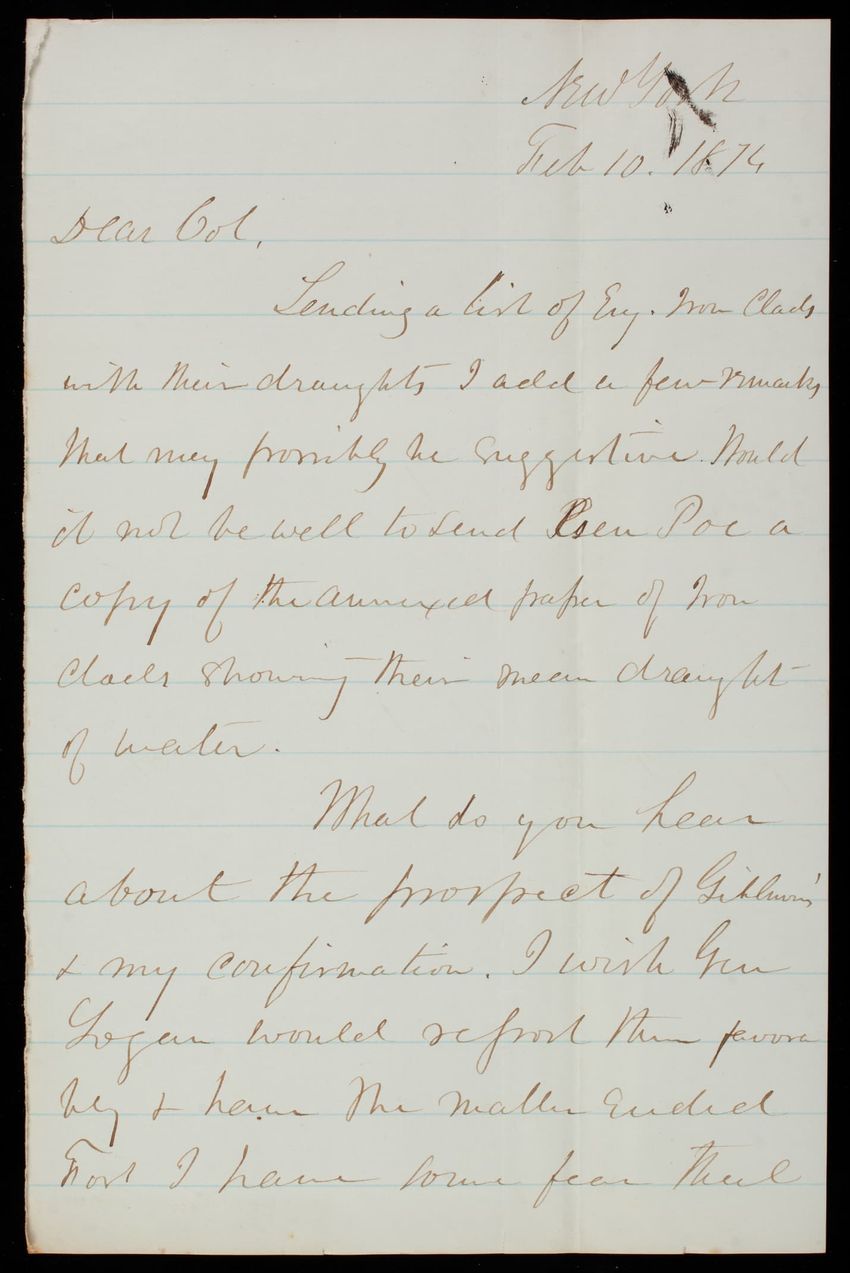 New York
Feb 10. 1874
Dear Col,
Sending a list of Eng. Iron Clads
with their draughts I add a few remarks
that may possibly be suggestive. Would
it not be well to send Gen Poe a
copy of the annexed paper of Iron
clads showing their mean draught
of water.
What do you hear
about the prospect of
& my confirmation. I wish Gen
Logan would report them favora
bly & have the matter ended
I have some fear that